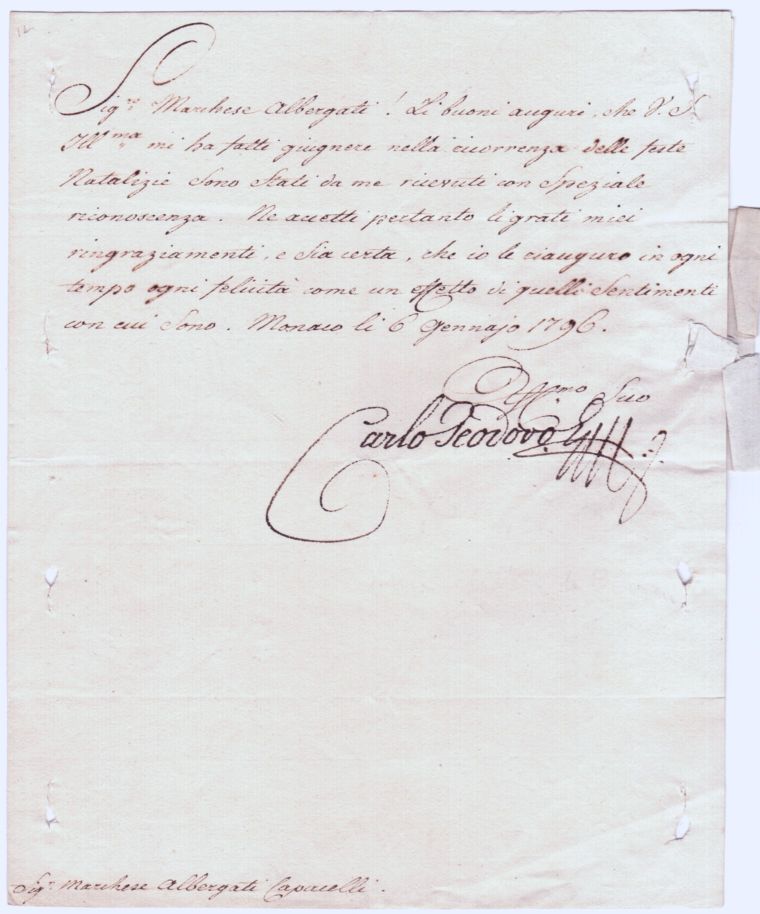 12
Sig.r Marchese Albergati! Li buoni auguri, che V. S.
Ill.ma mi ha fatti giugnere nella ricorrenza delle feste
Natalizie sono stati da me ricevuti con speziale
riconoscenza. Ne accetti pertanto li grati miei
ringraziamenti, e sia certa, che io le riauguro in ogni
tempo ogni felicità come un effetto di quelli sentimenti
con cui sono. Monaco li 6 Gennajo 1796.
Aff.mo Suo
Carlo Teodoro
Sig.r Marchese Albergati Capacelli.